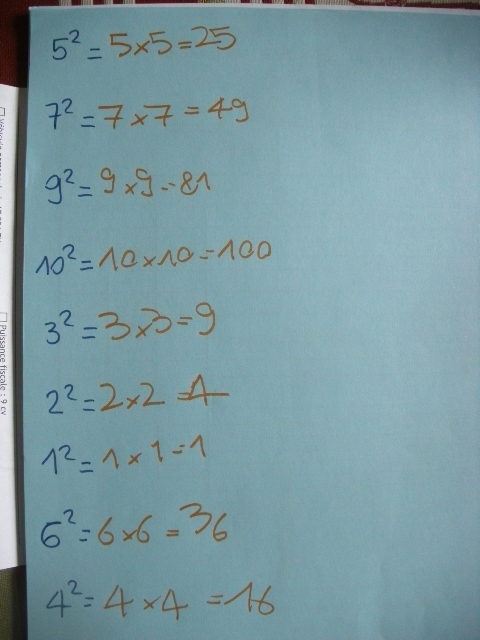 5² = 5x5=25
7² = 7 x 7 = 49
9² = 9 x 9 = 81
10² = 10x10=100
3² = 3x3=9
2² = 2x2 = 4
1² = 1 x 1 = 1
6² = 6x6 = 36
4² = 4 x 4 = 16
Puissance fiscale : 9 cv